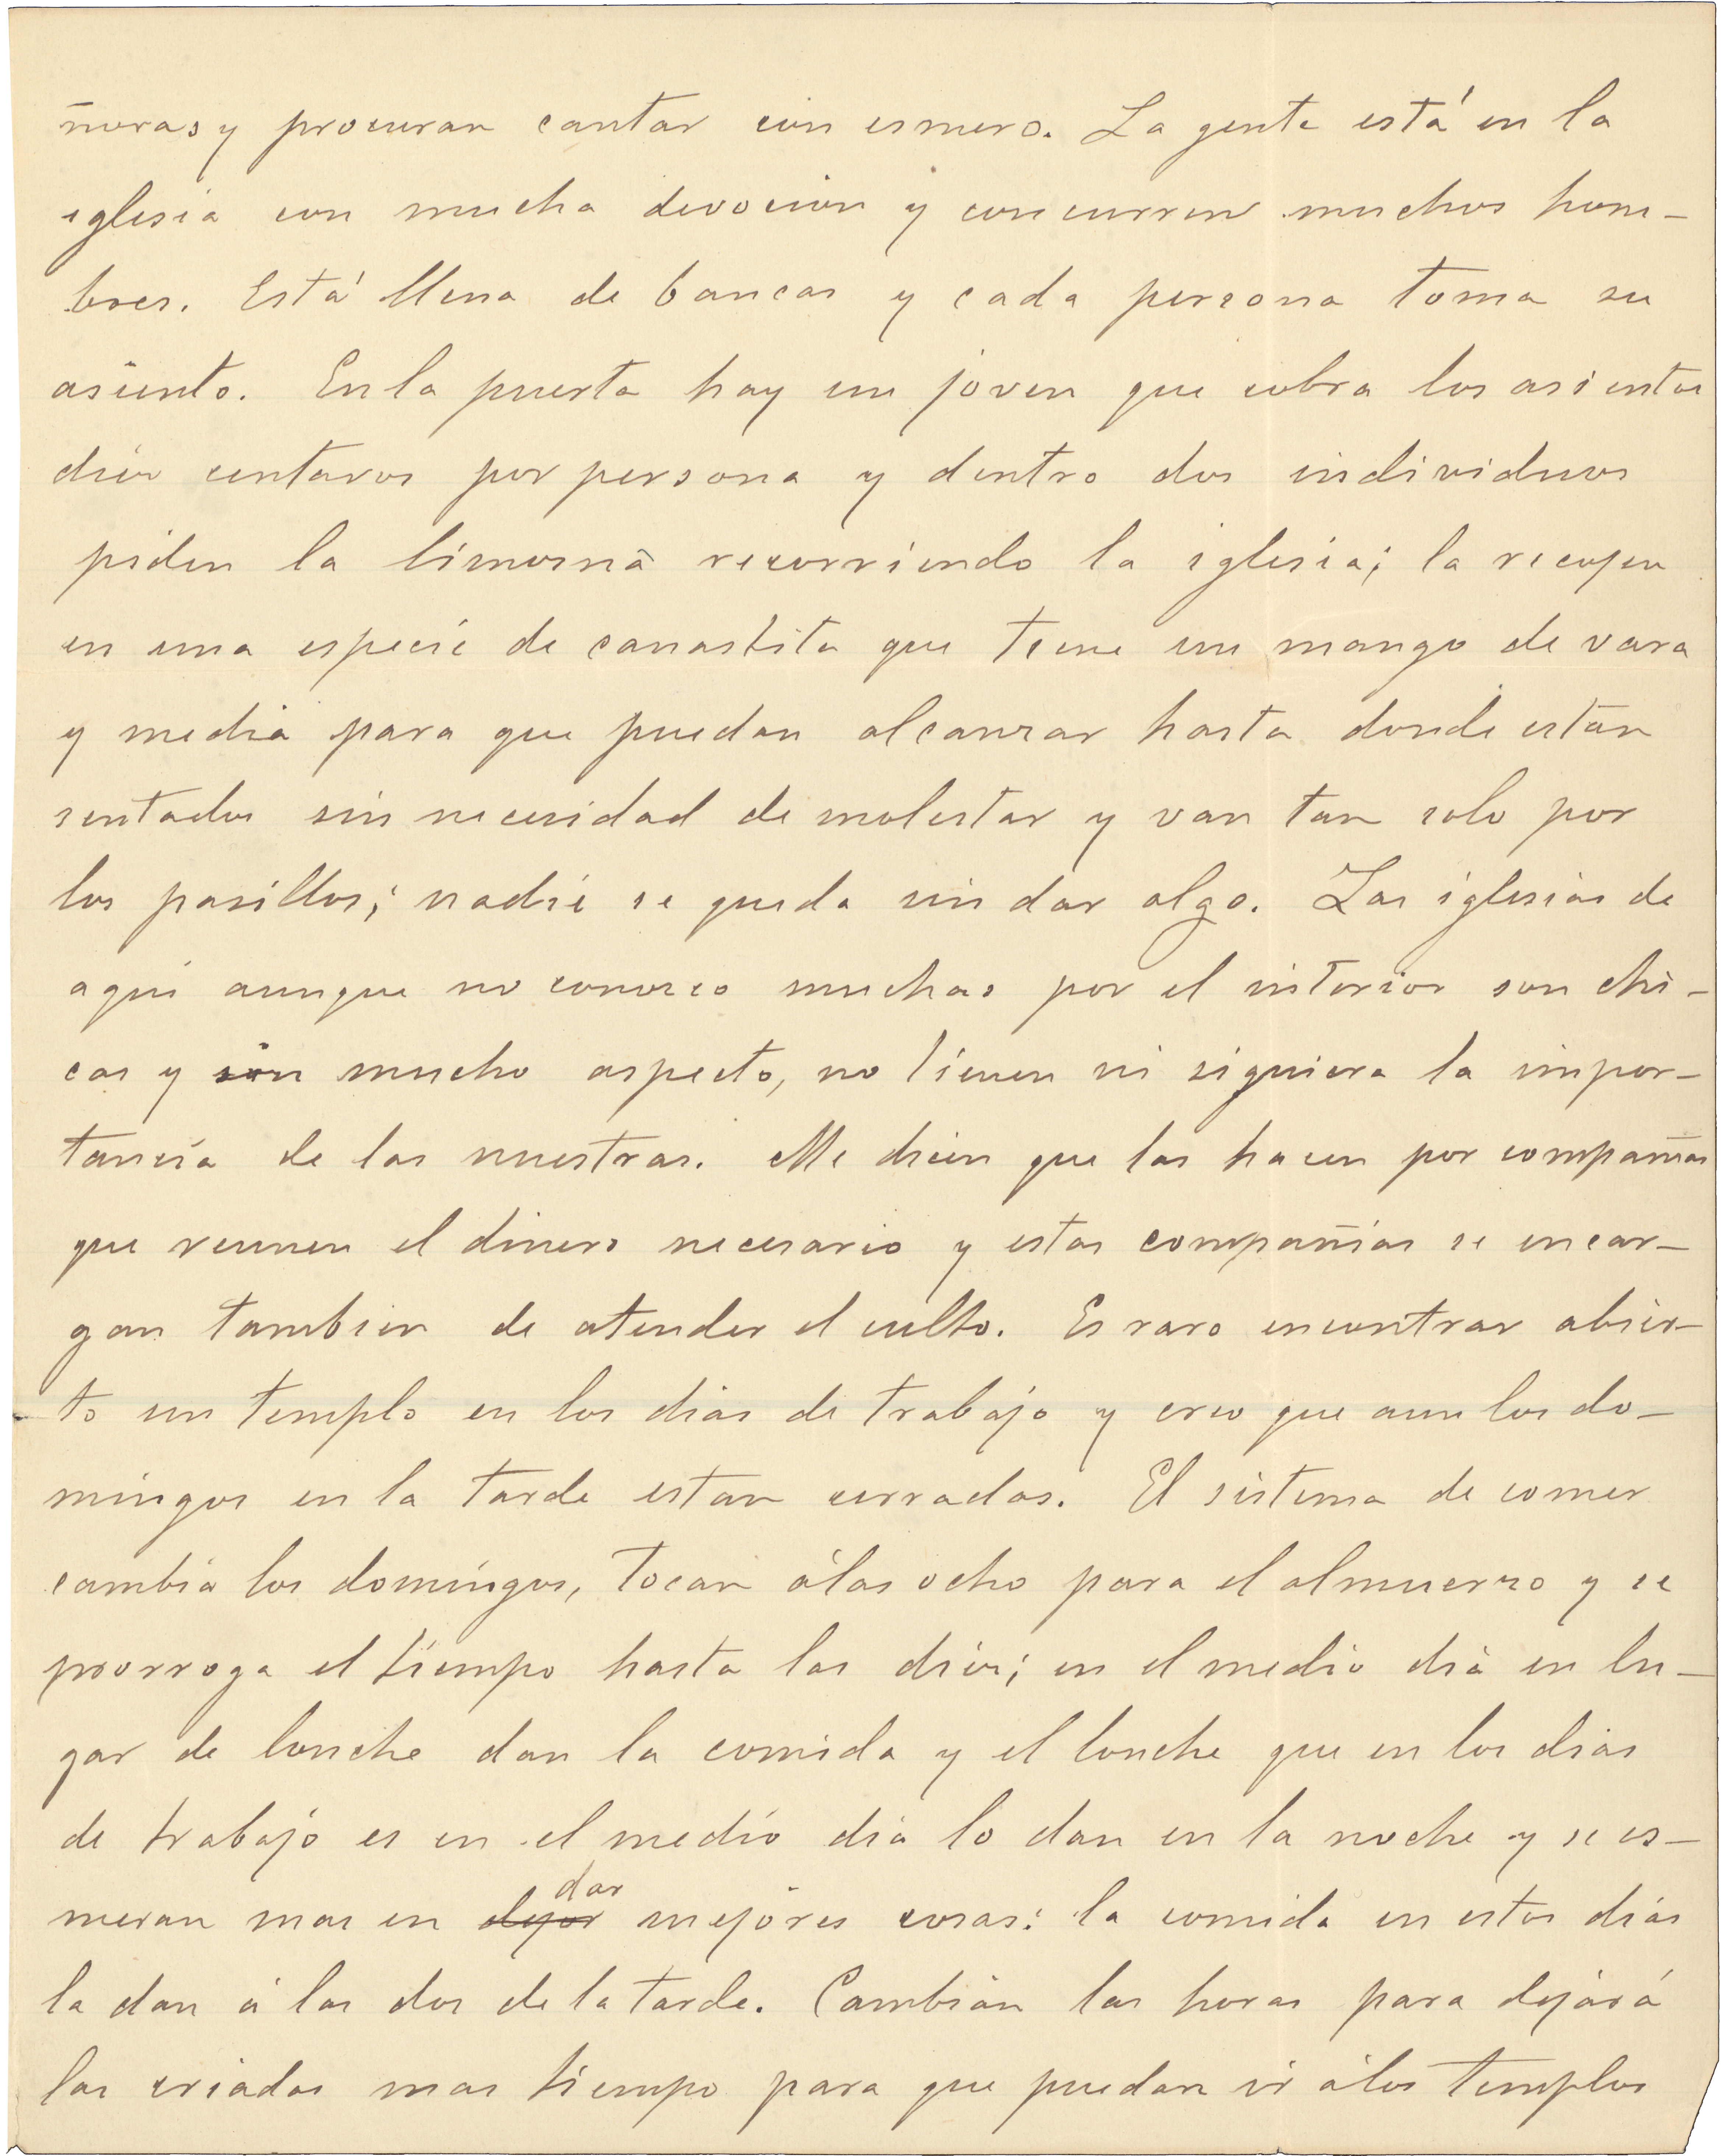 ñoras y procuran cantar con esmero. La gente está en la
iglesia con mucha devocion y concurren muchos hom-
bres. Está llena de bancas y cada persona toma su
asiento. En la puerta hay un joven que cobra los asientos
diez centavos por persona y dentro dos individuos
piden la limosna recorriendo la iglesia; la recojen
en una especie de canastita que tiene un mango de vara
y media para que puedan alcanzar hasta donde estan
sentados sin necesidad de molestar y van tan solo por
los pasillos; nadie se queda sin dar algo. Las iglesias de
aqui aunque no conozco muchas por el interior son chi-
cas y sin mucho aspecto, no tienen ni siquiera la impor-
tancia de las nuestras. Me dicen que las hacen por compañias
que reunen el dinero necesario y estas compañias se encar-
gan tambien de atender el culto. Es raro encontrar abier-
to un templo en los dias de trabajo y creo que aun los do-
mingos en la tarde estan cerrados. El sistema de comer
cambia los domingos, tocan á las ocho para el almuerzo y se
prorroga el tiempo hasta las diez; en el medio dia en lu-
gar de lonche dan la comida y el lonche que en los dias
de trabajo es en el medio dia lo dan en la noche y se es-
meran mas en dejar dar mejores cosas: la comida en estos dias
la dan á las dos de la tarde. Cambian las horas para dejar á
las criadas mas tiempo para que puedan ir á los templos